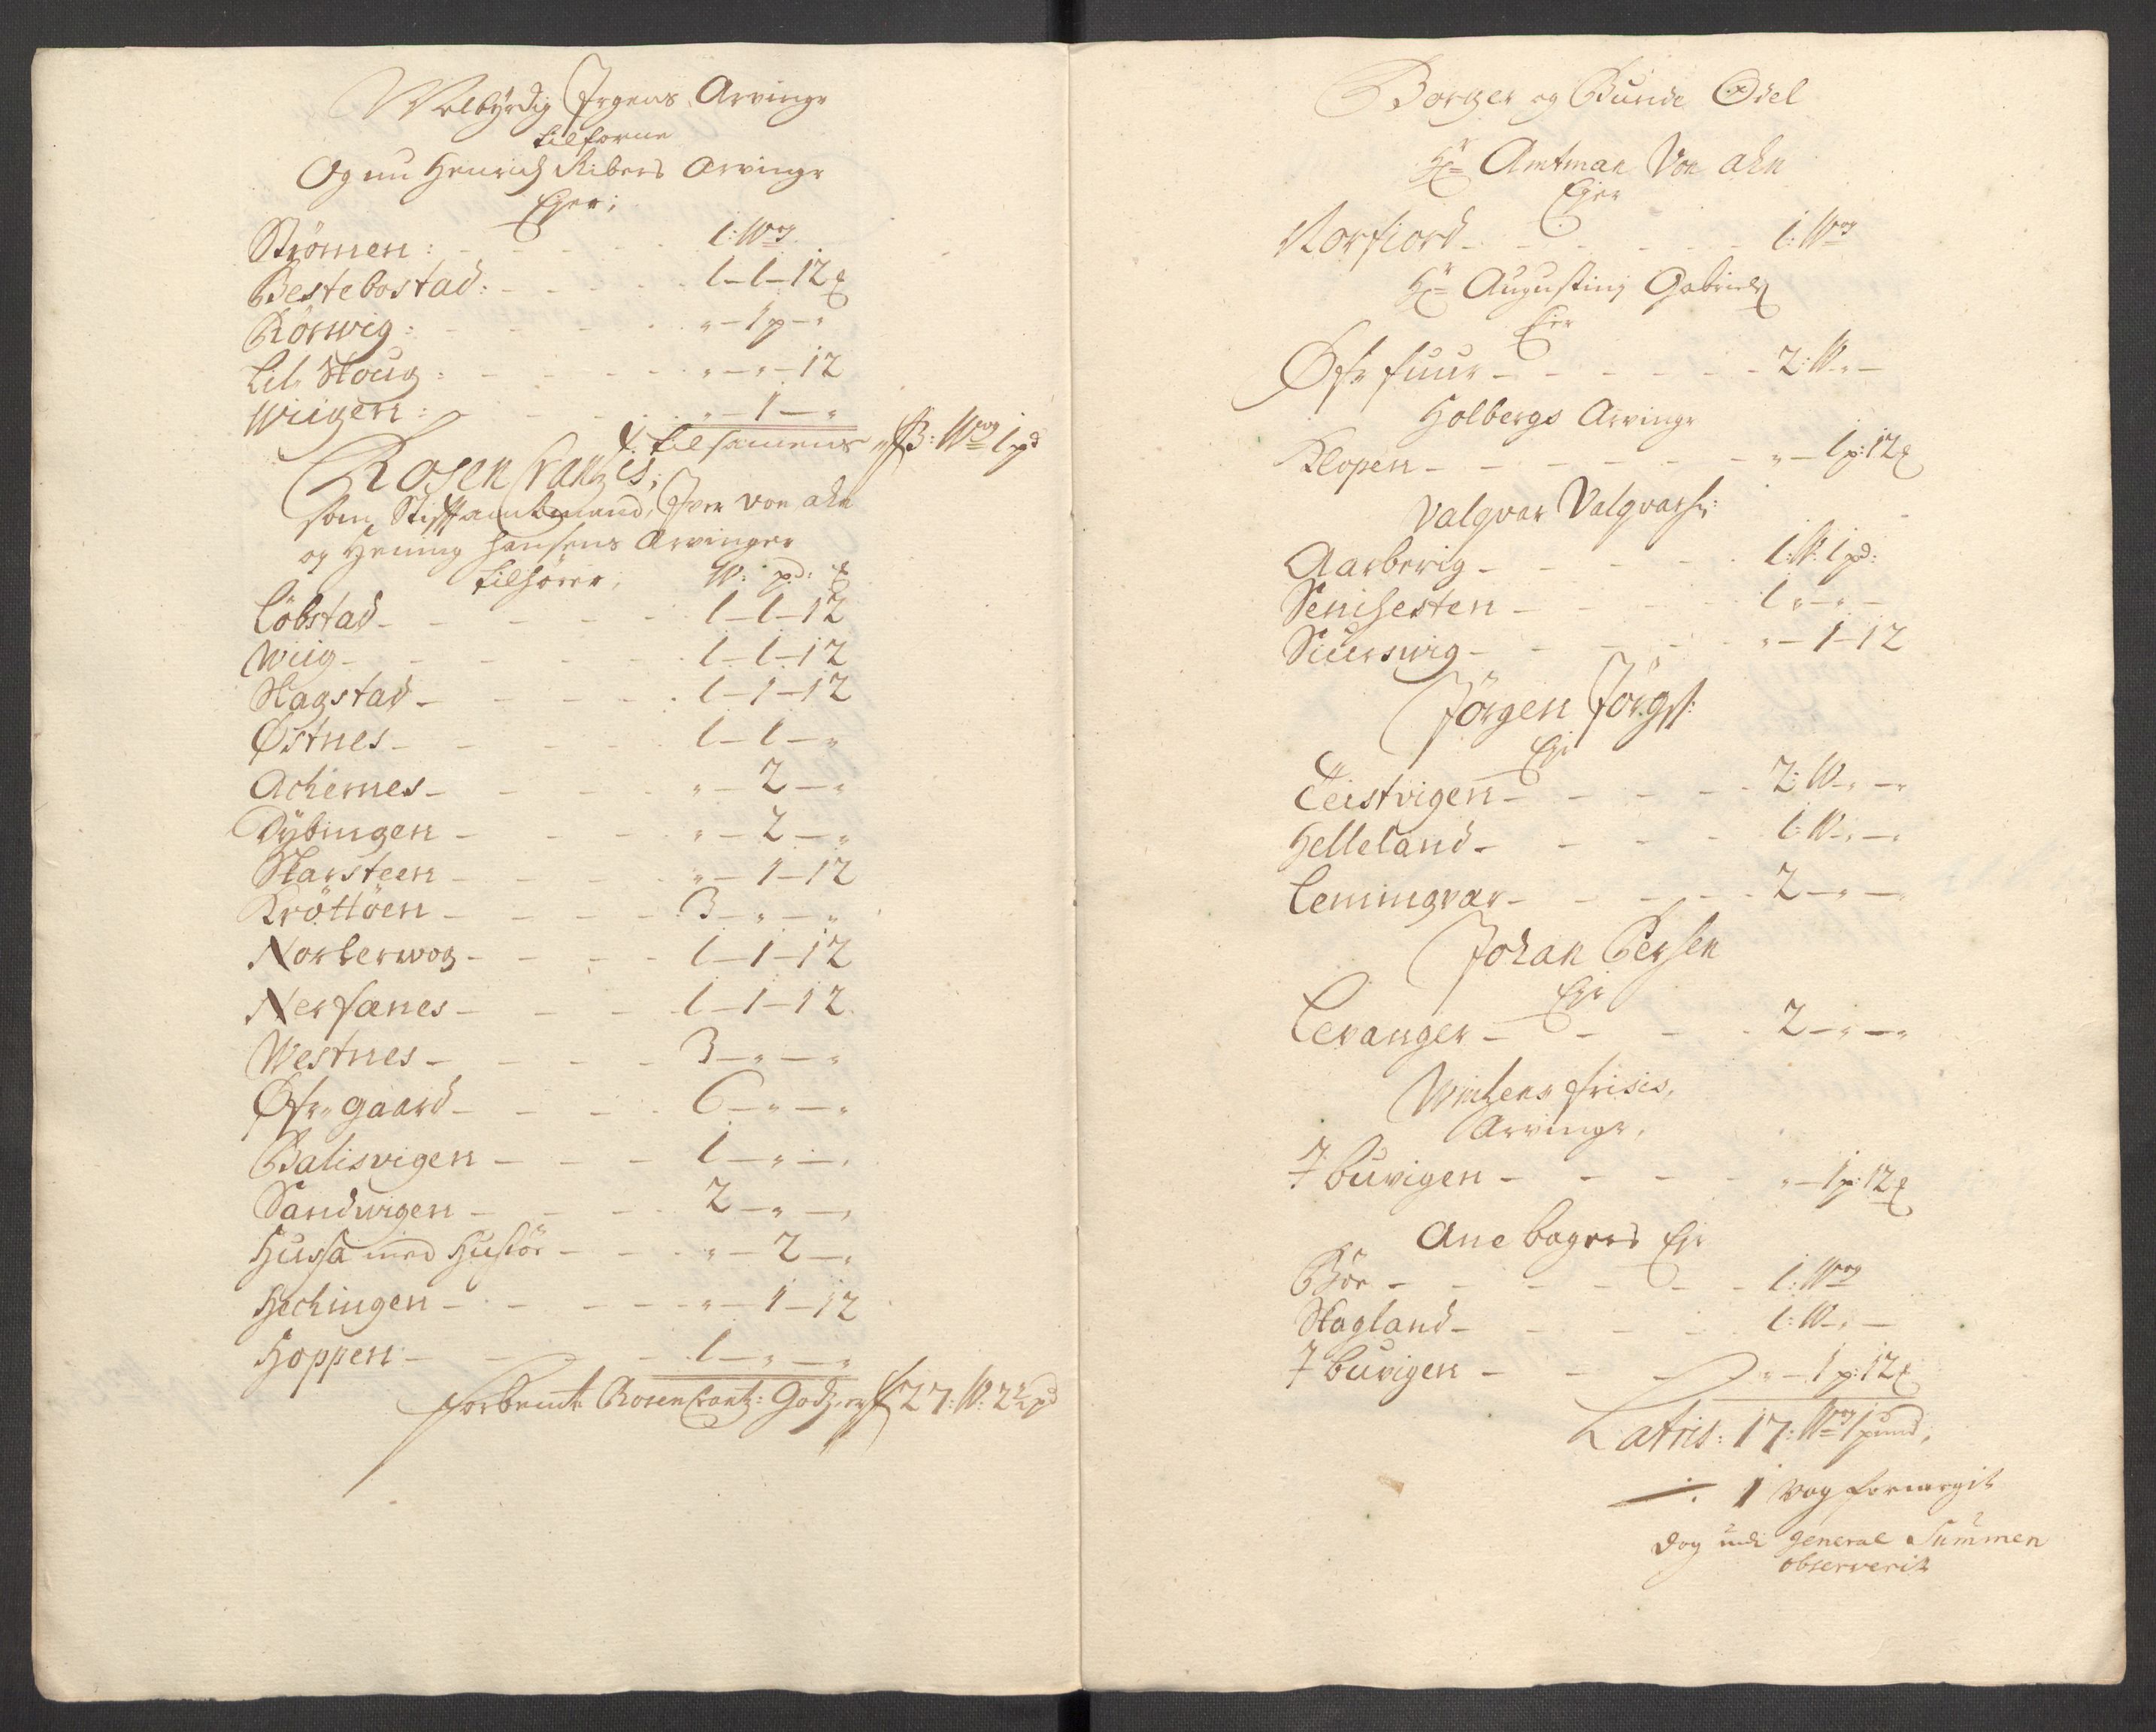 Welbyrdig Irgens Arvinger
tilforne
Og nu Henrich Ribers Arvinger
Ejer;
Strömen: - - - 1: Wog
Bestebostad: - - - 1 - 1 - 12 ℔
Rörwig: - - - " - 1 p - "
Lil Skoug: - - - " - " - 12
Wiigen: - - - " - 1 - "
tilsamens er 3: Wog 1 pd
Rosen Crantzis;
som Stiftamtmand, Iver von Ahn
og Hening Hansens Arvinger
tilhörer; W: pd: ℔
Löbstad - - - 1 - 1 - 12
Wiig - - - 1 - 1 - 12
Skagstad - - - 1 - 1 - 12
Østnes - - - 1 - 1 - "
Achernes - - - " - 2 - "
Dybingen - - - " - 2 - "
Skarsteen - - - " - 1 - 12
Kröttöen - - - 3 - " - "
Norderwog - - - 1 - 1 - 12
Nerfanes - - - 1 - 1 - 12
Westnes - - - 3 - " - "
Øfre gaard - - - 6 - " - "
Balisvigen - - - 1 - " - "
Sandwigen - - - 2 - " - "
Hussa med Husöe - - - " - 2 - "
Hechingen - - - " - 1 - 12
Hoppen - - - 1 - " - "
forbemt: Rosen Crantz: Godz er 27: W: 2 pd
Borger og Bunde Odel
Hr Amtman Von Ahn
Ejer
Norfiord - - - 1: Wog
Hr Augustiny Gabriels
Ejer
Øfre fuur - - - 2: W " -
Holbergs Arvinger
Klopen - - - " - 1 p: 12 ℔
Valgvar Valgvars:
Aarberig - - - 1: W: 1 pd:
Senihesten - - - 1 " - " -
Siuerswig - - - " - 1 - 12
Jörgen Jörgs:
Ejer
Teistvigen - - - 2: W - " - "
Helleland - - - 1: W - " - "
Lemingvar - - - 2 - " -
Johan Persen
Ejer
Levanger - - - 2 - " - "
Michens frisis,
Arvinger,
7buvigen - - - " - 1 p: 12 ℔
Ane bagers Ejer
Böe - - - 1: Wog
Skogland - - - 1: W - " -
7buvigen - - - " - 1 p: 12 ℔
Latris: 17: Wog 1 pund,
÷ 1 Vog formegit
dog udi general Summen
observerit